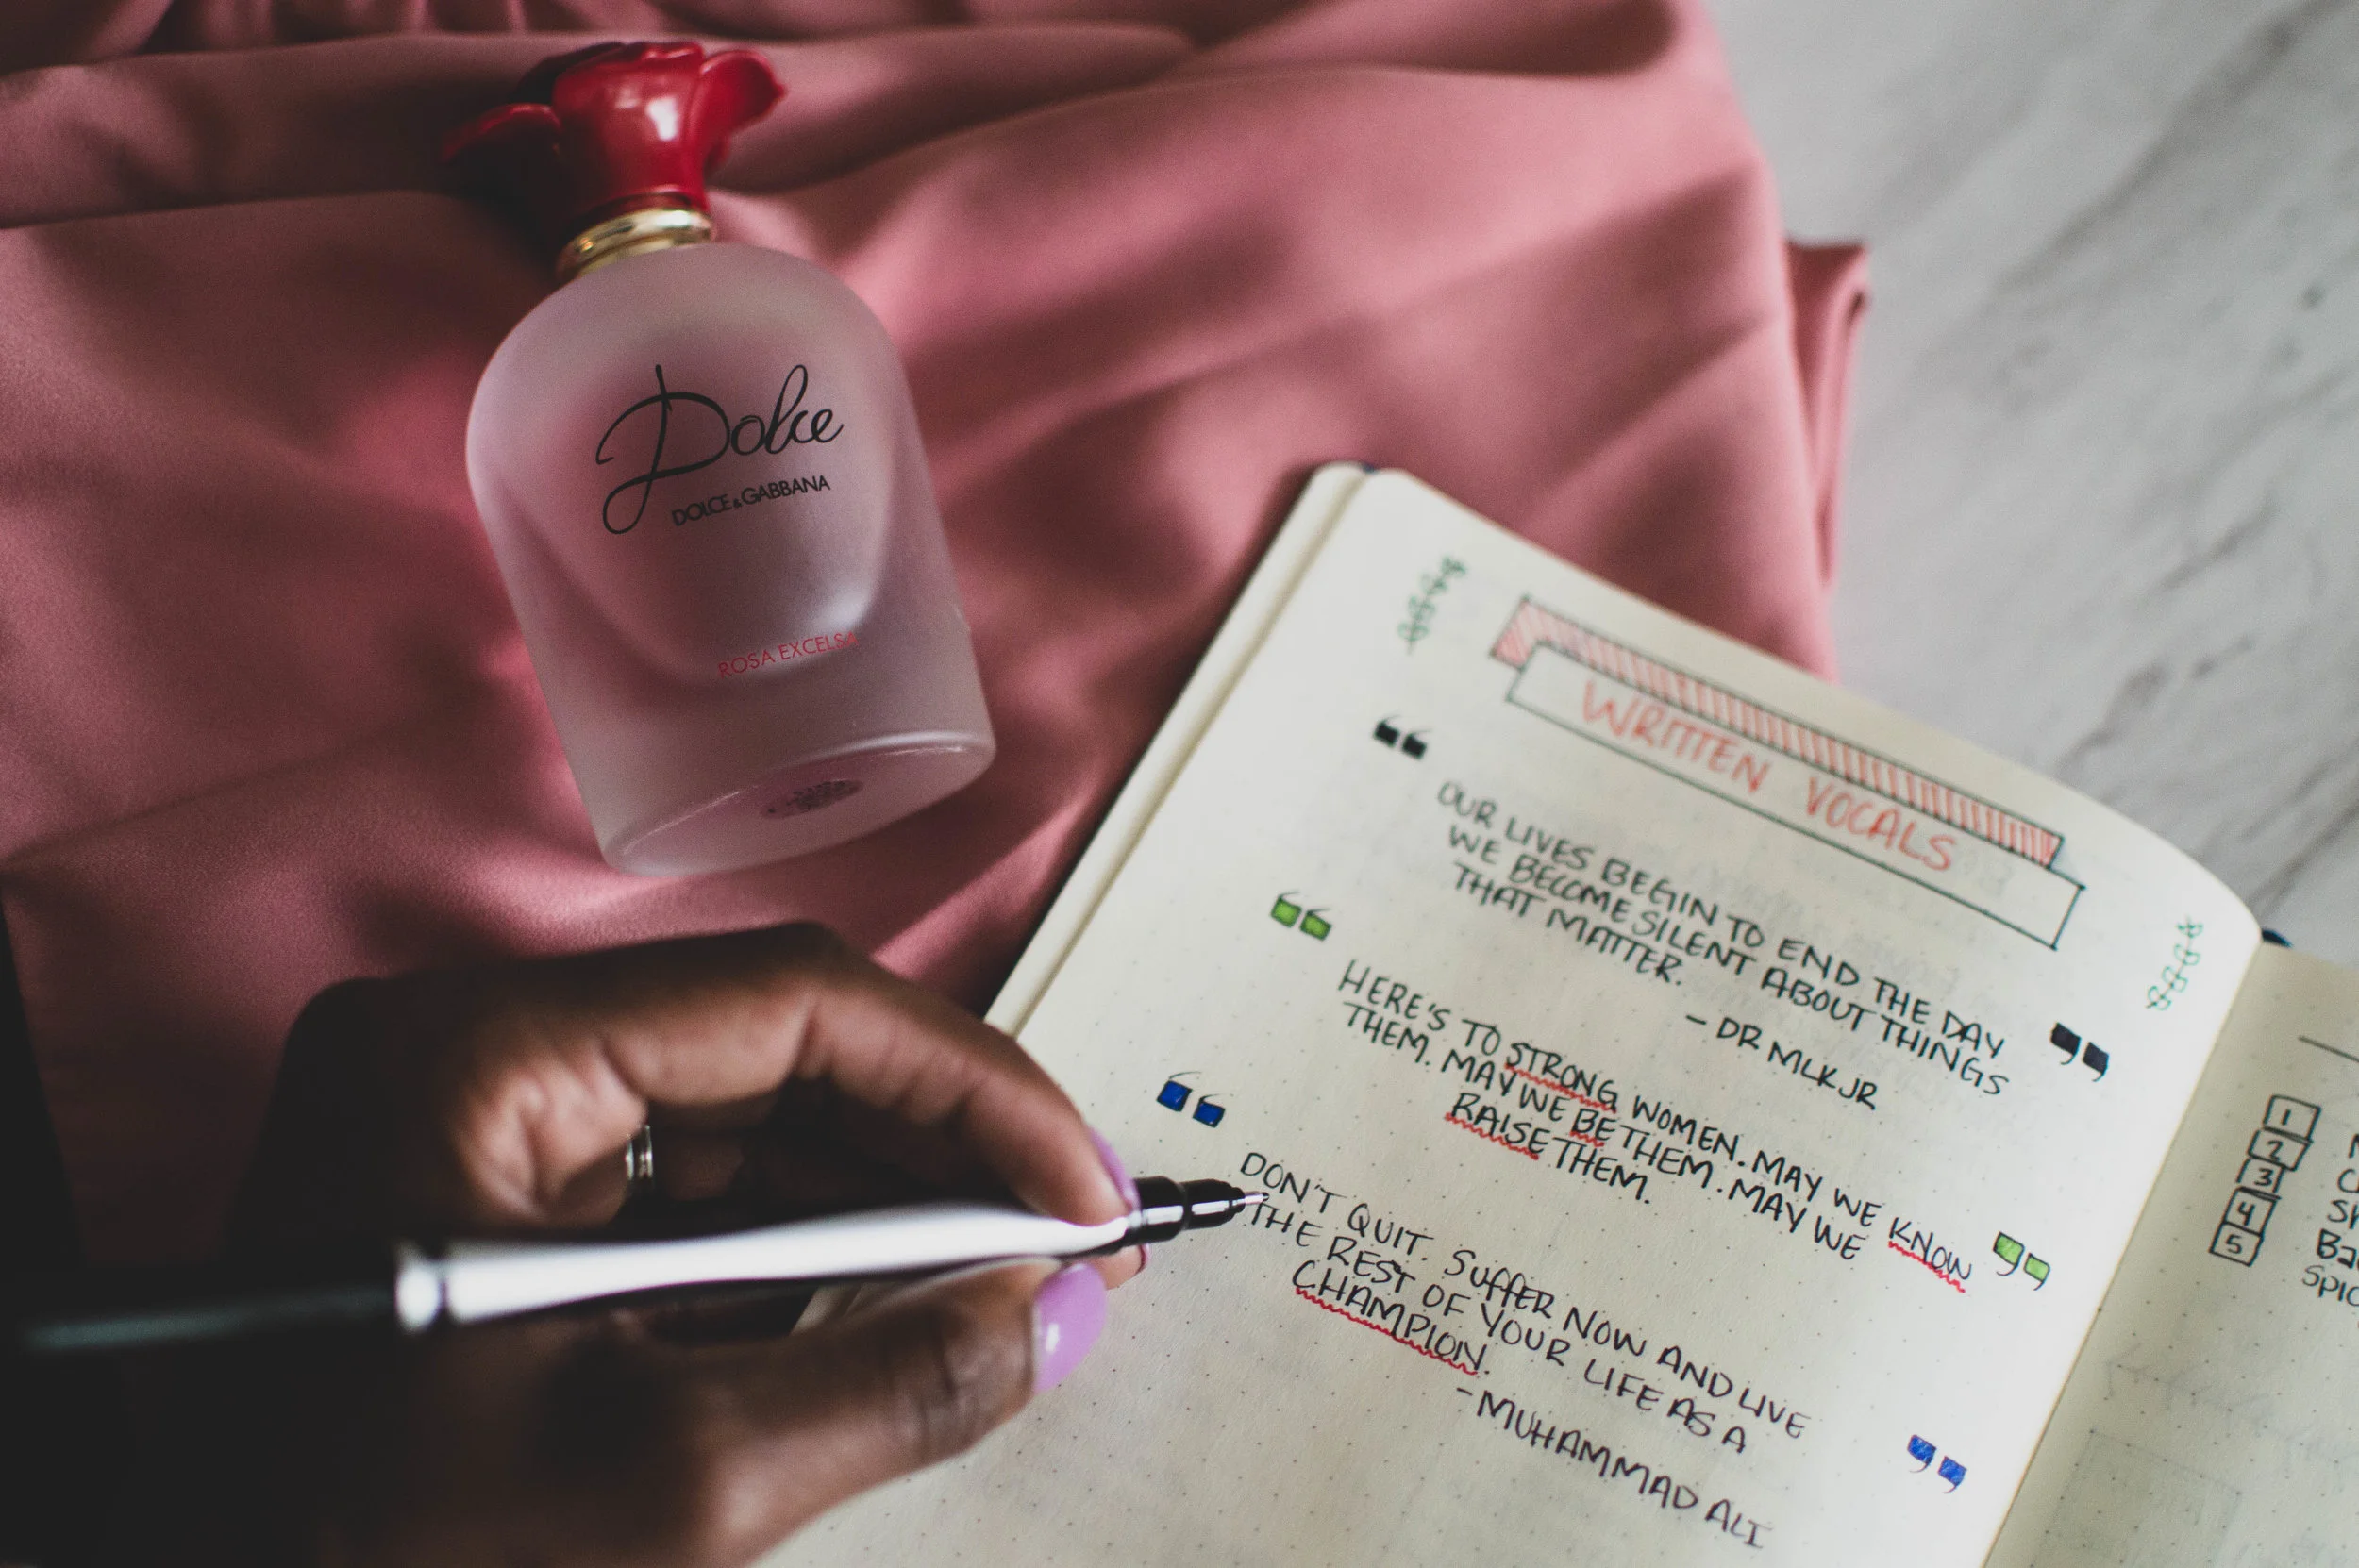 Dolce
DOLCE & GABBANA
ROSA EXCELSA
WRITTEN VOCALS
“
OUR LIVES BEGIN TO END THE DAY
WE BECOME SILENT ABOUT THINGS
THAT MATTER.
”
- DR MLK JR
“
HERE'S TO STRONG WOMEN. MAY WE KNOW
THEM. MAY WE BE THEM. MAY WE
RAISE THEM.
”
“
DON'T QUIT. SUFFER NOW AND LIVE
THE REST OF YOUR LIFE AS A
CHAMPION.
”
- MUHAMMAD ALI
1
2
3
4
5